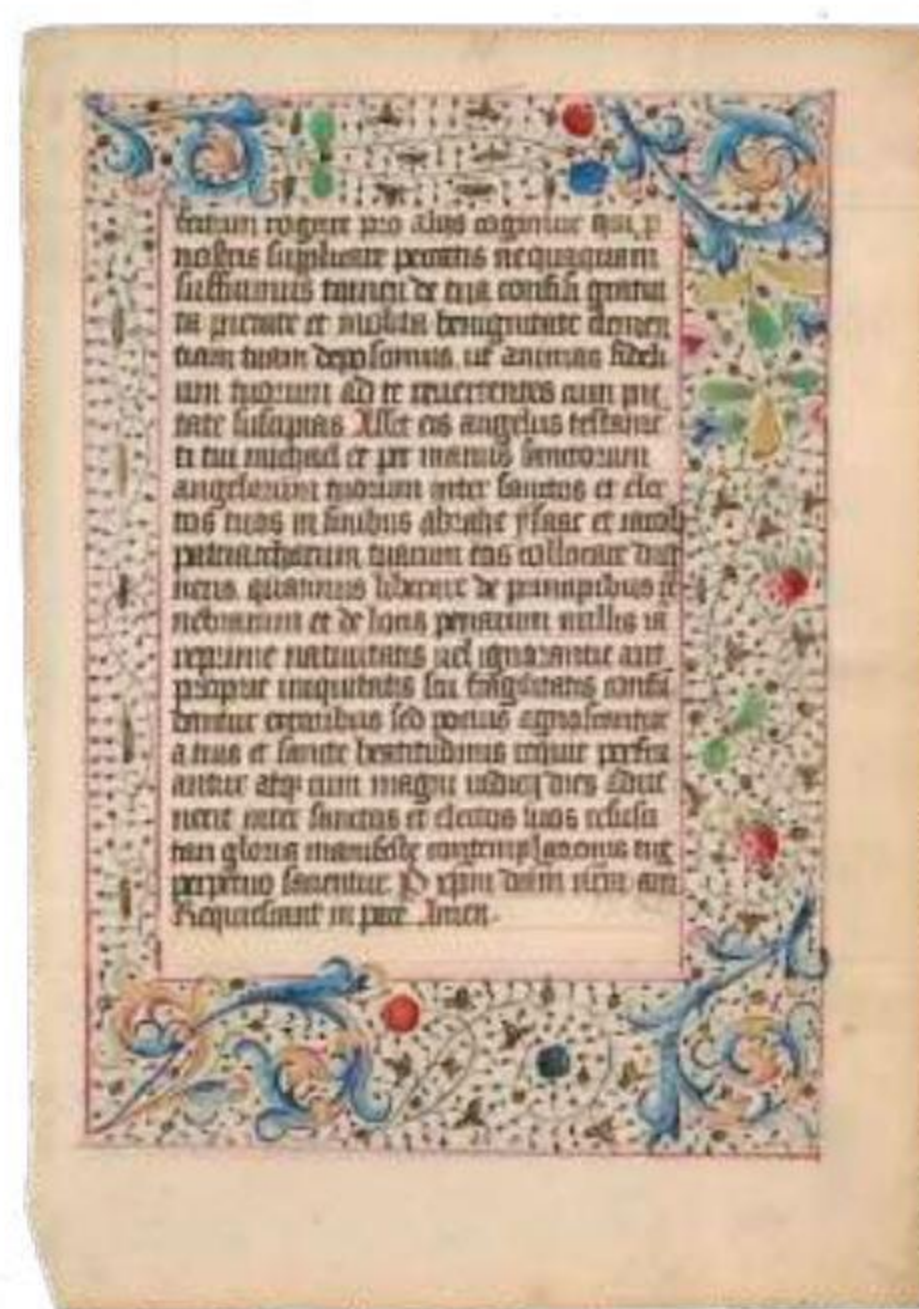 rogare pro aliis cogimur qui p
nostris supplicare peccatis nequaquam
sufficimus tamen de tua confisi gratui
ta pietate et solita benignitate clemen
tiam tuam deposcimus ut animas fideli
um tuorum ad te revertentes cum pie
tate suscipias Assit eis angelus testame
ti tui michael et per manus sanctorum
angelorum tuorum inter sanctos et elec
tos tuos in sinibus abrahe ysaac et iacob
patriarcharum tuorum eas collocare dig
neris quatinus liberate de principibus te
nebrarum et de locis penarum nullis ia
prime nativitatis vel ignorantie aut
proprie iniquitatis seu fragilitatis confu
dantur erroribus sed potius agnoscantur
a tuis et sancte beatitudinis requie perfru
antur atq cum magni iudicij dies adve
nerit inter sanctos et electos tuos resusci
tati gloria manifeste contemplationis tue
perpetuo sacientur P xpm dnm nrm am
Requiescant in pace Amen